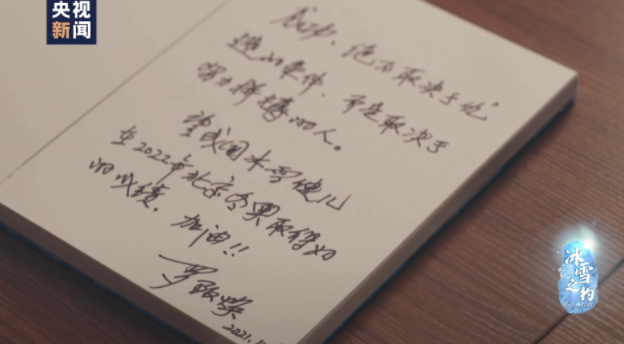 央视
新闻
成功，绝不取决于优
越的条件，而是取决于
努力拼搏的人。
望我国冰雪健儿
在2022年北京冬奥取得好
的成绩，加油!!
罗致焕
2021.1
冰雪之约